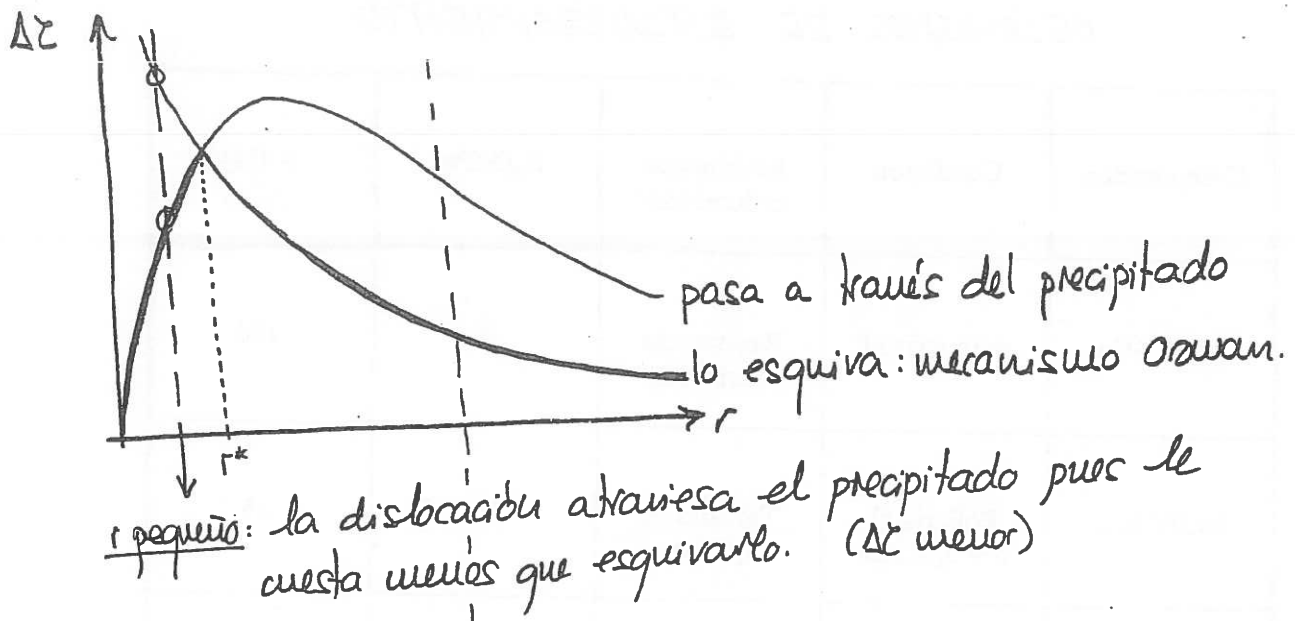 Δτ
pasa a través del precipitado
lo esquiva: mecanismo Orowan.
r
r*
r pequeño: la dislocación atraviesa el precipitado pues le
cuesta menos que esquivarlo. (Δτ menor)